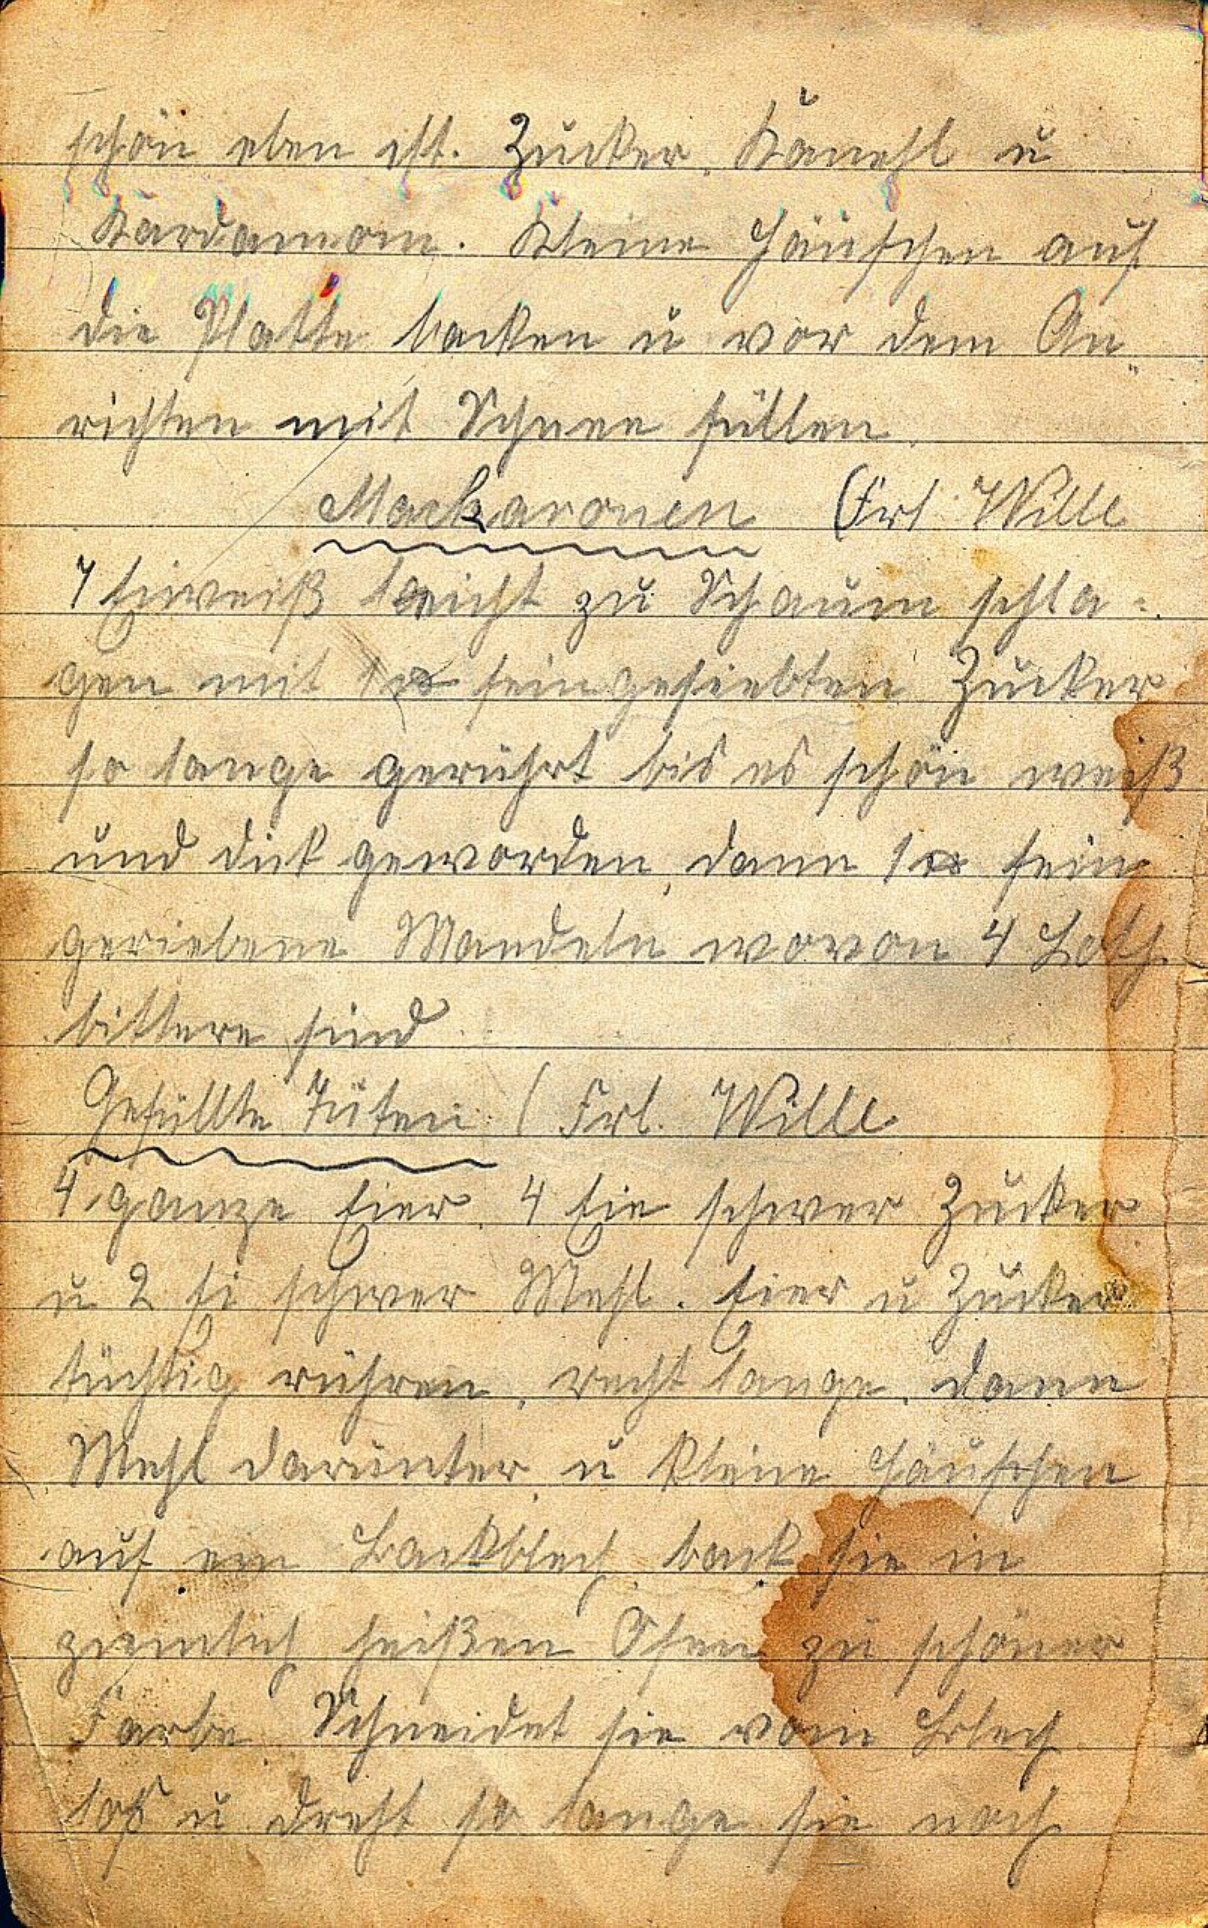 schön eben ist. Zucker, Kanehl u
Kardamom. Kleine Häufchen auf
die Platte backen u vor dem An„
richten mit Schnee füllen.
Mackaronen (Frl. Wille
7 Eiweiß leicht zu Schaum schla=
gen mit 1 ℔ feingesiebten Zucker
so lange gerührt bis es schön weiß
und dick geworden, dann 1 ℔ fein
geriebene Mandeln wovon 4 Loth
bittere sind
Gefüllte Tüten (Frl. Wille
4 ganze Eier, 4 Eie schwer Zucker
u 2 Ei schwer Mehl. Eier u Zucker
tüchtig rühren, recht lange, dann
Mehl darunter u kleine Häufchen
auf ein Backblech, back sie in
ziemlich heißen Ofen zu schöner
Farbe. Schneidet sie vom Blech
loß u dreht so lange sie noch